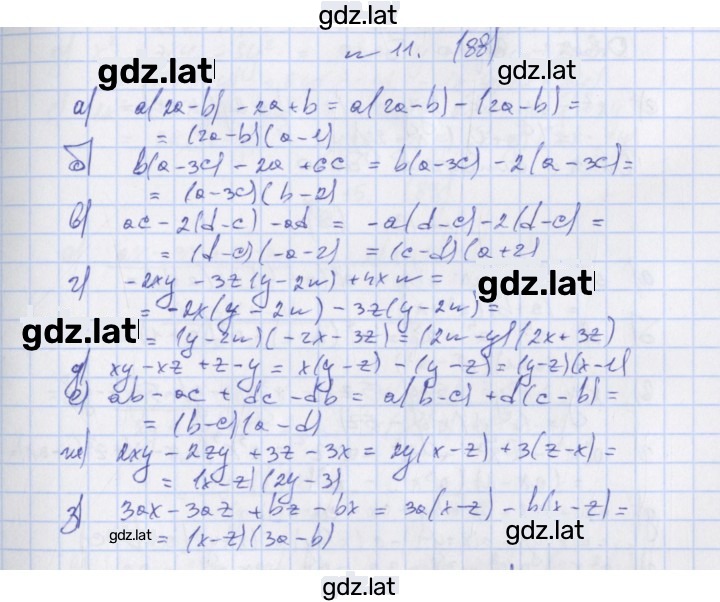 gdz.lat
№ 11. (88)
gdz.lat
gdz.lat
а) a(2a-b) - 2a+b = a(2a-b) - (2a-b) =
= (2a-b)(a-1)
б) b(a-3c) - 2a + 6c = b(a-3c) - 2(a-3c) =
= (a-3c)(b-2)
в) ac - 2(d-c) - ad = -a(d-c) - 2(d-c) =
= (d-c)(-a-2) = (c-d)(a+2)
г) -2xy - 3z(y-2n) + 4xn =
gdz.lat
= -2x(y-2n) - 3z(y-2n) =
gdz.lat
= (y-2n)(-2x-3z) = (2n-y)(2x+3z)
д) xy - xz + z - y = x(y-z) - (y-z) = (y-z)(x-1)
е) ab - ac + dc - db = a(b-c) + d(c-b) =
= (b-c)(a-d)
ж) 2xy - 2zy + 3z - 3x = 2y(x-z) + 3(z-x) =
= (x-z)(2y-3)
з) 3ax - 3az + bz - bx = 3a(x-z) - b(x-z) =
gdz.lat
gdz.lat
= (x-z)(3a-b)
gdz.lat